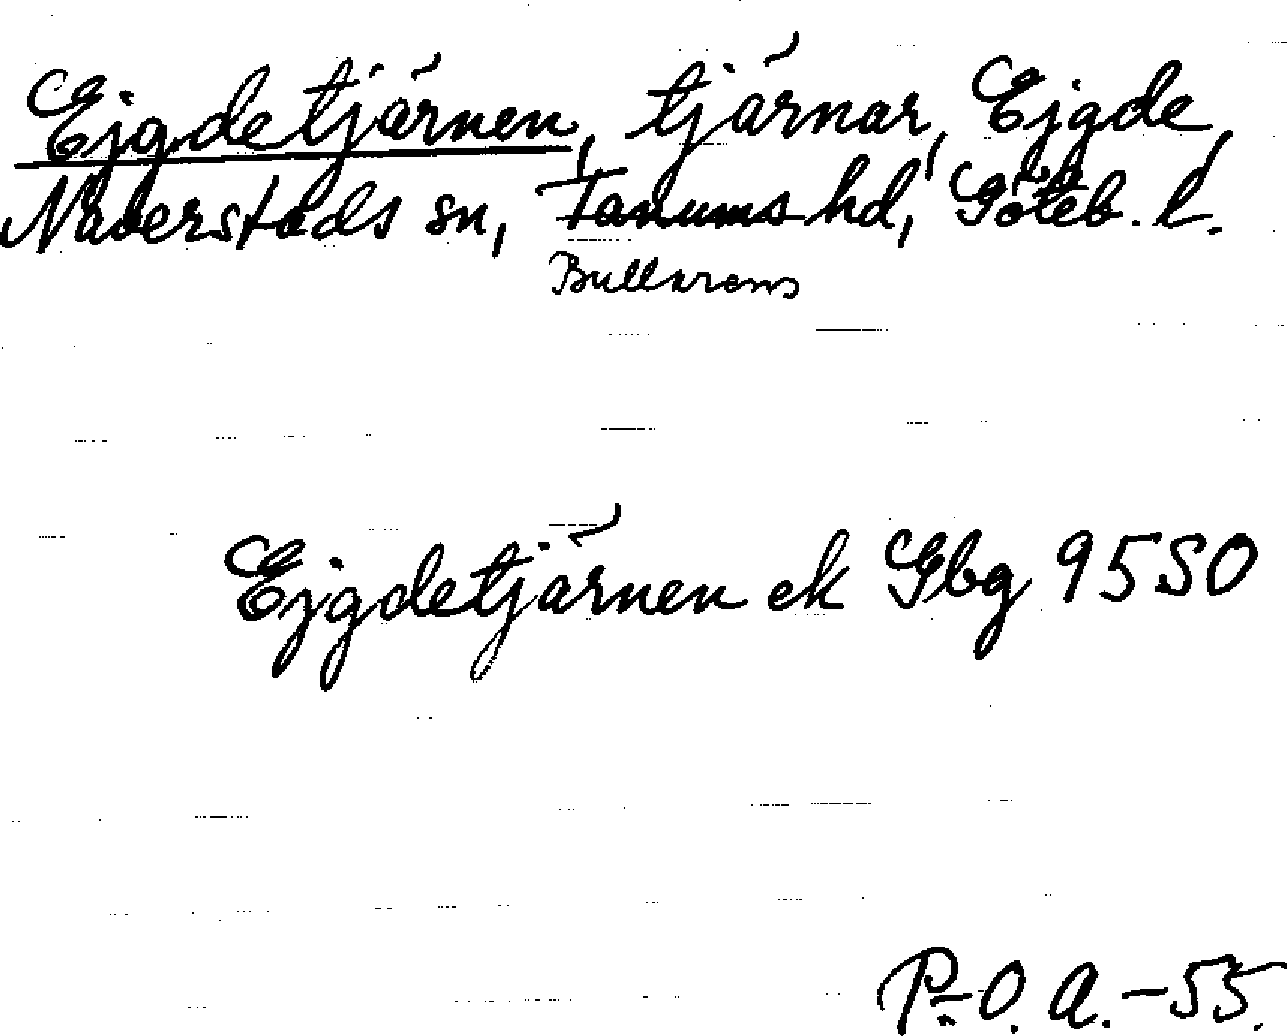 Ejgdetjärnen, tjärnar, Ejgde,
Naverstads sn, Tanums hd, Göteb. l.
Bullarens
Ejgdetjärnen ek Gbg 9550
P-O. A.-55.